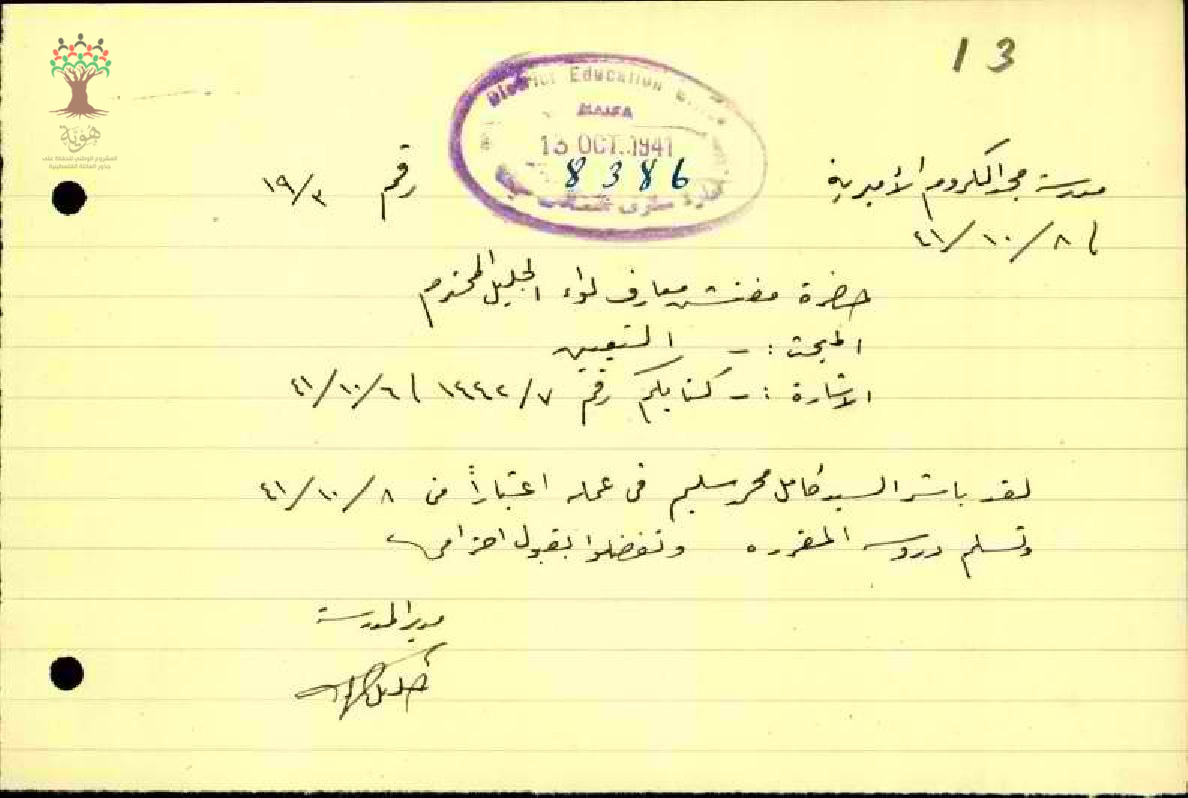 13
District Education Office
HAIFA
13 OCT. 1941
8386
مدرسة مجد الكروم الأميرية
رقم ١٩/٣
في ٤١/١٠/٨
حضرة مفتش معارف لواء الجليل المحترم
المبحث :- التعيين
الاشارة :- كتابكم رقم ١٤٤٢/٧ في ٤١/١٠/٦
لقد باشر السيد كامل محمد سليم في عمله اعتباراً من ٤١/١٠/٨
وتسلم دروسه المقرره وتفضلوا بقبول احترامي
مدير المدرسة
هوية
المشروع الوطني للحفاظ على
جذور العائلة الفلسطينية